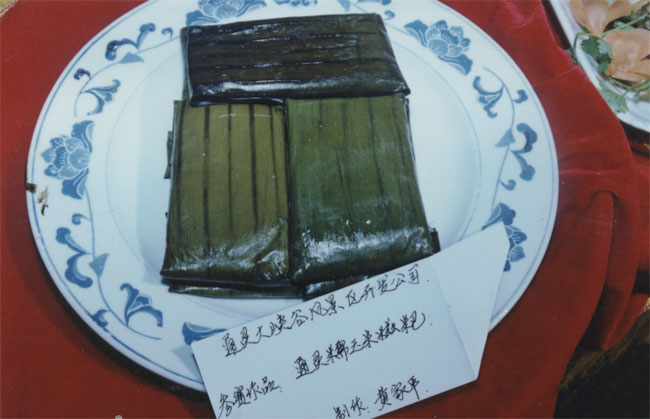 通灵大峡谷风景区开发公司
参赛作品: 通灵糯玉米糍粑
制作: 黄家平